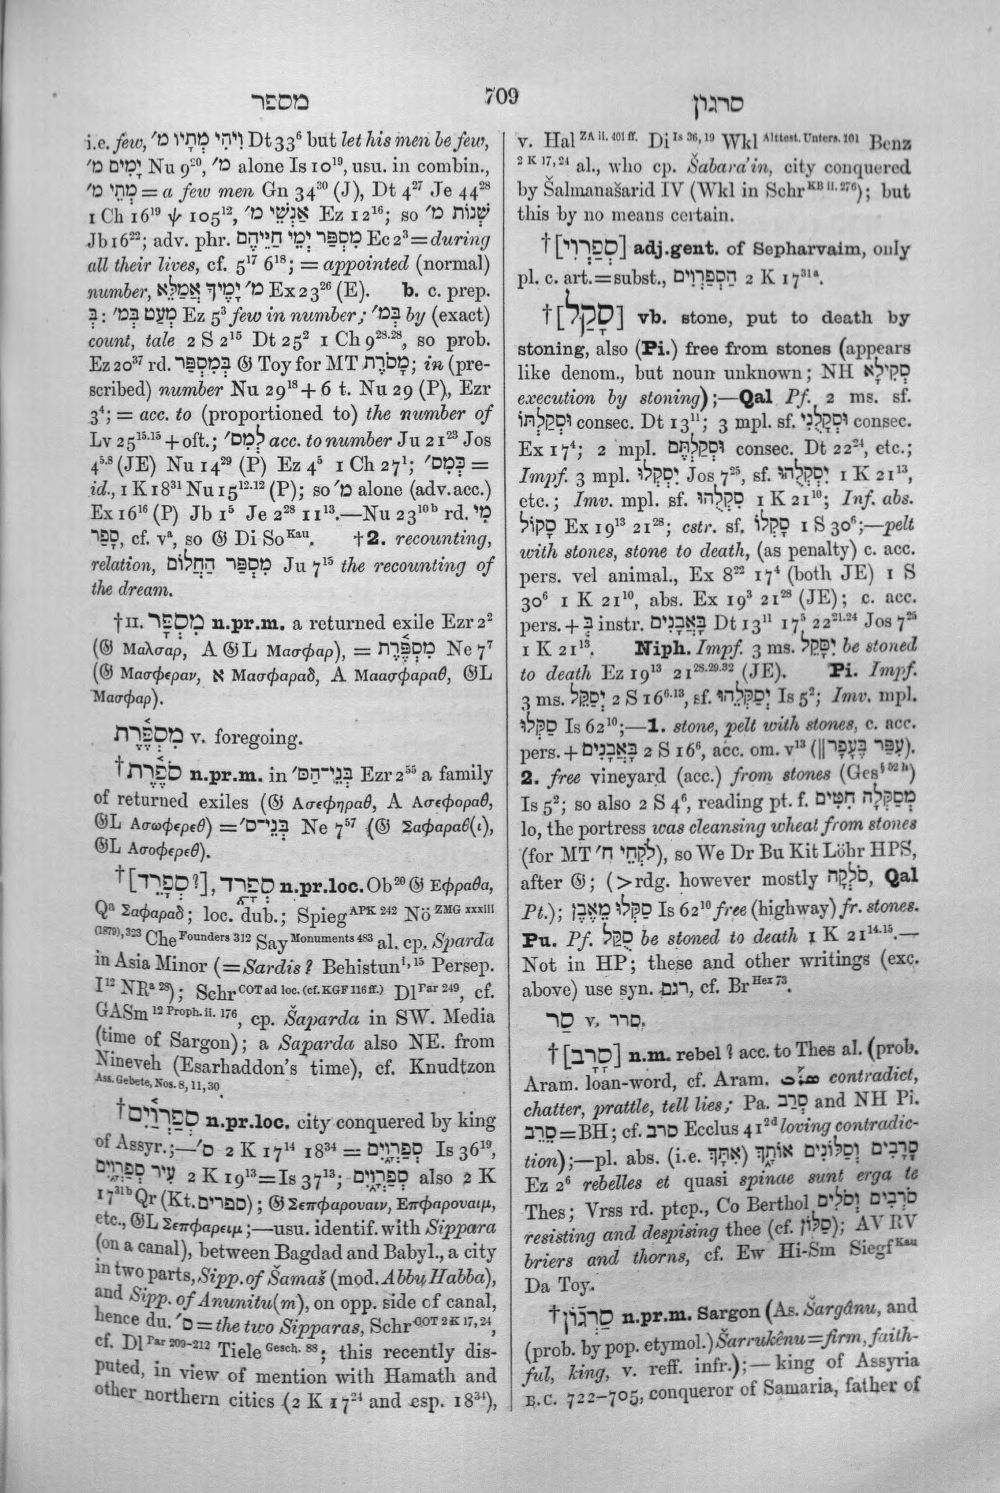 מספר
709
סרגון
i.e. few, וִיהִי מְתָיו מ׳ Dt 33⁶ but let his men be few,
יָמִים מ׳ Nu 9²⁰, מ׳ alone Is 10¹⁹, usu. in combin.,
מְתֵי מ׳ = a few men Gn 34³⁰ (J), Dt 4²⁷ Je 44²⁸
1 Ch 16¹⁹ ψ 105¹², אַנְשֵׁי מ׳ Ez 12¹⁶; so שְׁנוֹת מ׳
Jb 16²²; adv. phr. מִסְפַּר יְמֵי חַיֵּיהֶם Ec 2³ = during
all their lives, cf. 5¹⁷ 6¹⁸; = appointed (normal)
number, מ׳ יָמֶיךָ אֲמַלֵּא Ex 23²⁶ (E). b. c. prep.
בְּ: מְעַט בְּמ׳ Ez 5³ few in number; בְּמ׳ by (exact)
count, tale 2 S 2¹⁵ Dt 25² 1 Ch 9²⁸·²⁸, so prob.
Ez 20³⁷ rd. בְּמִסְפַּר 𝔊 Toy for MT מָסֹרֶת; in (pre-
scribed) number Nu 29¹⁸ + 6 t. Nu 29 (P), Ezr
3⁴; = acc. to (proportioned to) the number of
Lv 25¹⁵·¹⁵ + oft.; לְמִס׳ acc. to number Ju 21²³ Jos
4⁵·⁸ (JE) Nu 14²⁹ (P) Ez 4⁵ 1 Ch 27¹; כְּמִס׳ =
id., 1 K 18³¹ Nu 15¹²·¹² (P); so מ׳ alone (adv. acc.)
Ex 16¹⁶ (P) Jb 1⁵ Je 2²⁸ 11¹³.—Nu 23¹⁰ᵇ rd. מִי
סָפַר, cf. vᵃ, so 𝔊 Di So Kau. †2. recounting,
relation, מִסְפַּר הַחֲלוֹם Ju 7¹⁵ the recounting of
the dream.
†II. מִסְפָּר n.pr.m. a returned exile Ezr 2²
(𝔊 Μαλσαρ, A 𝔊L Μασφαρ), = מִסְפֶּרֶת Ne 7⁷
(𝔊 Μασφεραν, א Μασφαραδ, A Μαασφαραθ, 𝔊L
Μασφαρ).
מִסְפֶּרֶת v. foregoing.
†סֹפֶרֶת n.pr.m. in בְּנֵי־הַסּ׳ Ezr 2⁵⁵ a family
of returned exiles (𝔊 Ασεφηραθ, A Ασεφοραθ,
𝔊L Ασωφερεθ) = בְּנֵי־ס׳ Ne 7⁵⁷ (𝔊 Σαφαραθ(ι),
𝔊L Ασοφερεθ).
†[סְפָרֵד?], סְפָרַד n.pr.loc. Ob²⁰ 𝔊 Εφραθα,
Qᵃ Σαφαραδ; loc. dub.; Spieg APK 242 Nö ZMG xxxiii
(1879), 323 Che Founders 312 Say Monuments 483 al. cp. Sparda
in Asia Minor (= Sardis? Behistun i, 15 Persep.
I¹² NRᵃ ²⁸); Schr COT ad loc. (cf. KGF 116 ff.) Dl Par 249, cf.
GASm 12 Proph. ii. 176, cp. Šaparda in SW. Media
(time of Sargon); a Saparda also NE. from
Nineveh (Esarhaddon's time), cf. Knudtzon
Ass. Gebete, Nos. 8, 11, 30
†סְפַרְוַיִם n.pr.loc. city conquered by king
of Assyr.;—ס׳ 2 K 17¹⁴ 18³⁴ = סְפַרְוָיִם Is 36¹⁹,
עִיר סְפַרְוָיִם 2 K 19¹³ = Is 37¹³; סְפַרְוָיִם also 2 K
17³¹ᵇ Qr (Kt. ספרים); 𝔊 Σεπφαρουαιν, Επφαρουαιμ,
etc., 𝔊L Σεπφαρειμ;—usu. identif. with Sippara
(on a canal), between Bagdad and Babyl., a city
in two parts, Sipp. of Šamaš (mod. Abbu Habba),
and Sipp. of Anunitu(m), on opp. side of canal,
hence du. ס׳ = the two Sipparas, Schr COT 2 K 17, 24,
cf. Dl Par 209–212 Tiele Gesch. 88; this recently dis-
puted, in view of mention with Hamath and
other northern cities (2 K 17²⁴ and esp. 18³⁴),
v. Hal ZA ii. 401 ff. Di Is 36, 19 Wkl Alttest. Unters. 101 Benz
2 K 17, 24 al., who cp. Šabara'in, city conquered
by Šalmanašarid IV (Wkl in Schr KB ii. 276); but
this by no means certain.
†[סְפַרְוִי] adj.gent. of Sepharvaim, only
pl. c. art. = subst., הַסְפַרְוִים 2 K 17³¹ᵃ.
†[סָקַל] vb. stone, put to death by
stoning, also (Pi.) free from stones (appears
like denom., but noun unknown; NH סְקִילָא
execution by stoning);—Qal Pf. 2 ms. sf.
וּסְקַלְתּוֹ consec. Dt 13¹¹; 3 mpl. sf. וּסְקָלֻנִי consec.
Ex 17⁴; 2 mpl. וּסְקַלְתֶּם consec. Dt 22²⁴, etc.;
Impf. 3 mpl. יִסְקְלוּ Jos 7²⁵, sf. יִסְקְלֻהוּ 1 K 21¹³,
etc.; Imv. mpl. sf. סִקְלֻהוּ 1 K 21¹⁰; Inf. abs.
סָקוֹל Ex 19¹³ 21²⁸; cstr. sf. סָקְלוֹ 1 S 30⁶;—pelt
with stones, stone to death, (as penalty) c. acc.
pers. vel animal., Ex 8²² 17⁴ (both JE) 1 S
30⁶ 1 K 21¹⁰, abs. Ex 19³ 21²⁸ (JE); c. acc.
pers. + בְּ instr. בָּאֲבָנִים Dt 13¹¹ 17⁵ 22²¹·²⁴ Jos 7²⁵
1 K 21¹³. Niph. Impf. 3 ms. יִסָּקֵל be stoned
to death Ez 19¹³ 21²⁸·²⁹·³² (JE). Pi. Impf.
3 ms. יְסַקֵּל 2 S 16⁶·¹³, sf. יְסַקְּלֵהוּ Is 5²; Imv. mpl.
סַקְּלוּ Is 62¹⁰;—1. stone, pelt with stones, c. acc.
pers. + בָּאֲבָנִים 2 S 16⁶, acc. om. v¹³ (‖ עִפַּר בֶּעָפָר).
2. free vineyard (acc.) from stones (Ges § 52 h)
Is 5²; so also 2 S 4⁶, reading pt. f. מְסַקְּלָה חִטִּים
lo, the portress was cleansing wheat from stones
(for MT לֹקְחֵי ח׳), so We Dr Bu Kit Löhr HPS,
after 𝔊; (> rdg. however mostly סֹקְלָה, Qal
Pt.); סַקְּלוּ מֵאֶבֶן Is 62¹⁰ free (highway) fr. stones.
Pu. Pf. סֻקַּל be stoned to death 1 K 21¹⁴·¹⁵.—
Not in HP; these and other writings (exc.
above) use syn. רגם, cf. Br Hex 73.
סַר v. סרר.
†[סָרָב] n.m. rebel? acc. to Thes al. (prob.
Aram. loan-word, cf. Aram. contradict,
chatter, prattle, tell lies; Pa. סָרֵב and NH Pi.
סֵרֵב = BH; cf. סרב Ecclus 41²ᵈ loving contradic-
tion);—pl. abs. (i.e. אִתָּךְ) סָרָבִים וְסַלּוֹנִים אוֹתָךְ
Ez 2⁶ rebelles et quasi spinae sunt erga te
Thes; Vrss rd. ptcp., Co Berthol סֹרְבִים וְסֹלִים
resisting and despising thee (cf. סַלּוֹן); AV RV
briers and thorns, cf. Ew Hi-Sm Siegf Kau
Da Toy.
†סַרְגוֹן n.pr.m. Sargon (As. Šargânu, and
(prob. by pop. etymol.) Šarrukênu = firm, faith-
ful, king, v. reff. infr.);—king of Assyria
B.C. 722–705, conqueror of Samaria, father of